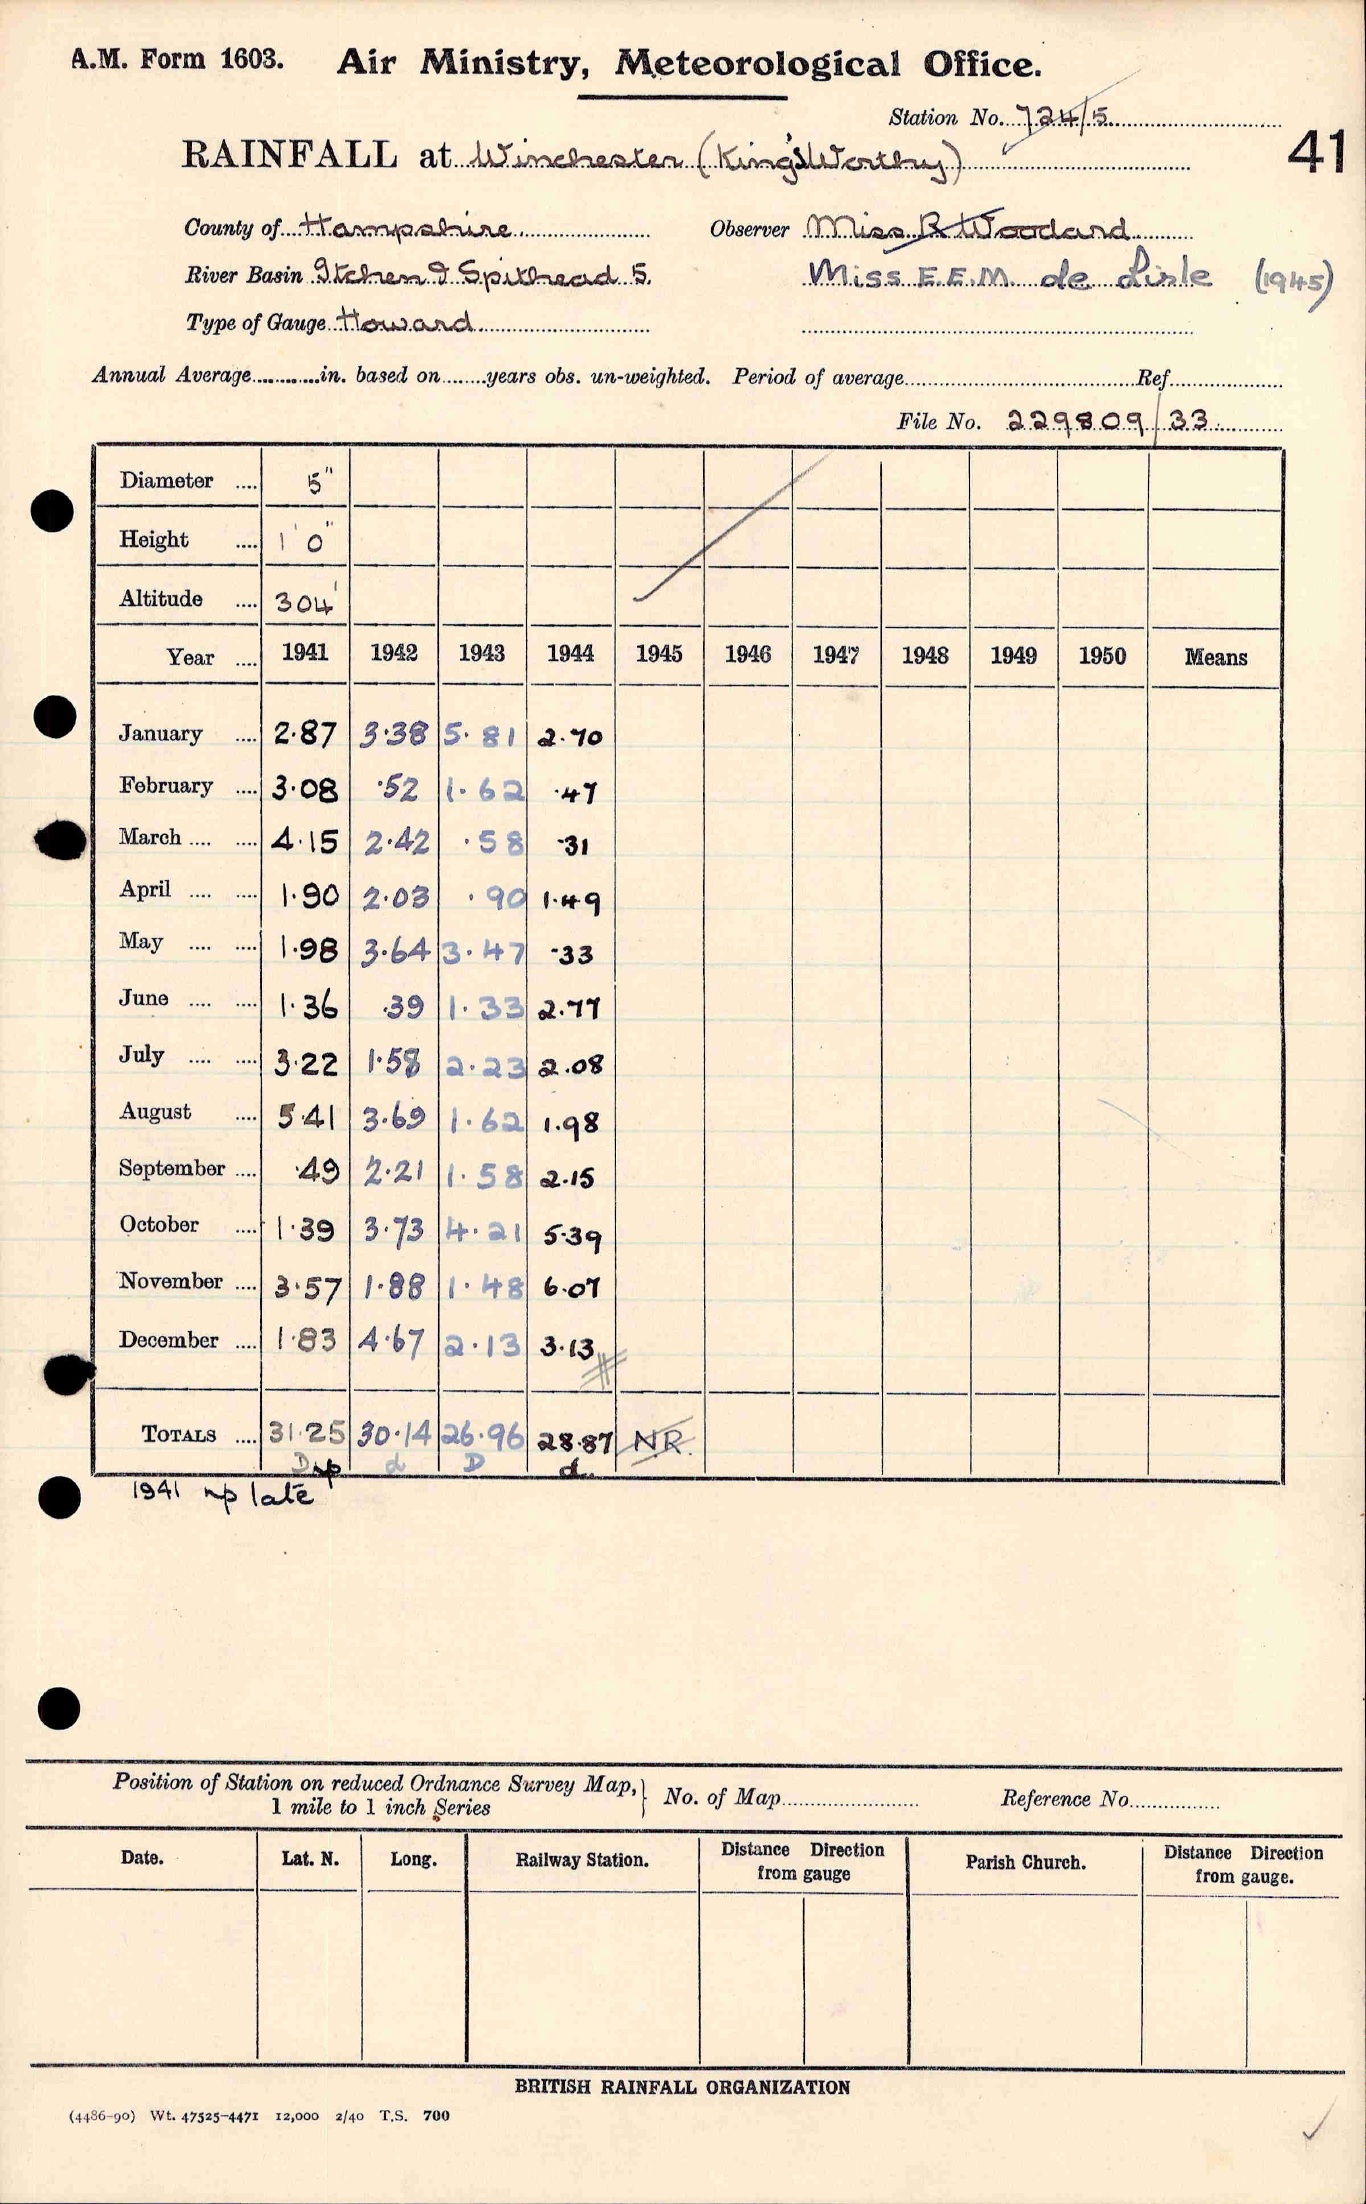 A.M. Form 1603. Air Ministry, Meteorological Office.
Station No. 724/5
41
RAINFALL at Winchester (King's Worthy)
County of Hampshire. Observer Miss R Woodard
River Basin Itchen & Spithead 5. Miss E.E.M. de Lisle (1945)
Type of Gauge Howard
Annual Average............in. based on........years obs. un-weighted. Period of average.............Ref.............
File No. 229809/33
Diameter .... 5"
Height .... 1' 0"
Altitude .... 304'
Year .... 1941 1942 1943 1944 1945 1946 1947 1948 1949 1950 Means
January .... 2.87 3.38 5.81 2.70
February .... 3.08 .52 1.62 .47
March .... .... 4.15 2.42 .58 .31
April .... .... 1.90 2.03 .90 1.49
May .... .... 1.98 3.64 3.47 .33
June .... .... 1.36 .39 1.33 2.77
July .... .... 3.22 1.58 2.23 2.08
August .... 5.41 3.69 1.62 1.98
September .... .49 2.21 1.58 2.15
October .... 1.39 3.73 4.21 5.39
November .... 3.57 1.88 1.48 6.07
December .... 1.83 4.67 2.13 3.13
TOTALS .... 31.25 30.14 26.96 28.87 NR.
D np d D d
1941 np late
Position of Station on reduced Ordnance Survey Map, } No. of Map............ Reference No............
1 mile to 1 inch Series
Date. Lat. N. Long. Railway Station. Distance Direction Parish Church. Distance Direction
from gauge from gauge.
BRITISH RAINFALL ORGANIZATION
(4486-90) Wt. 47525-4471 12,000 2/40 T.S. 700